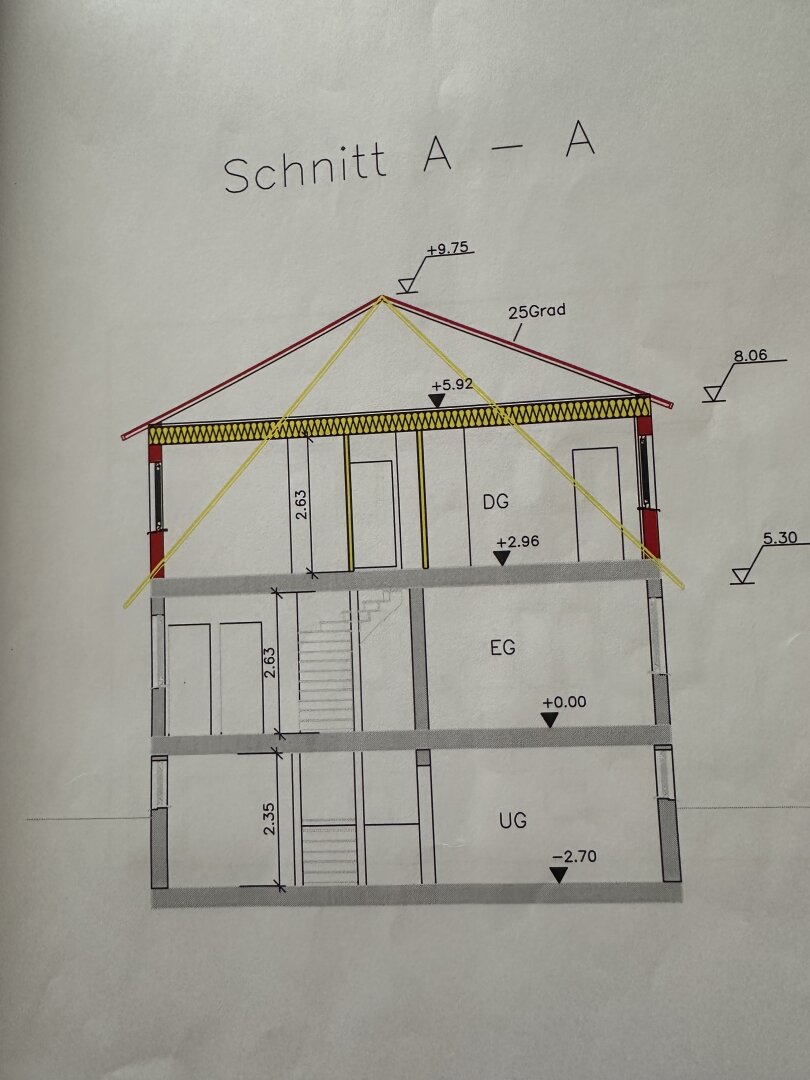 Schnitt A – A
+9.75
25Grad
8.06
+5.92
2.63
DG
+2.96
5.30
2.63
EG
+0.00
2.35
UG
−2.70